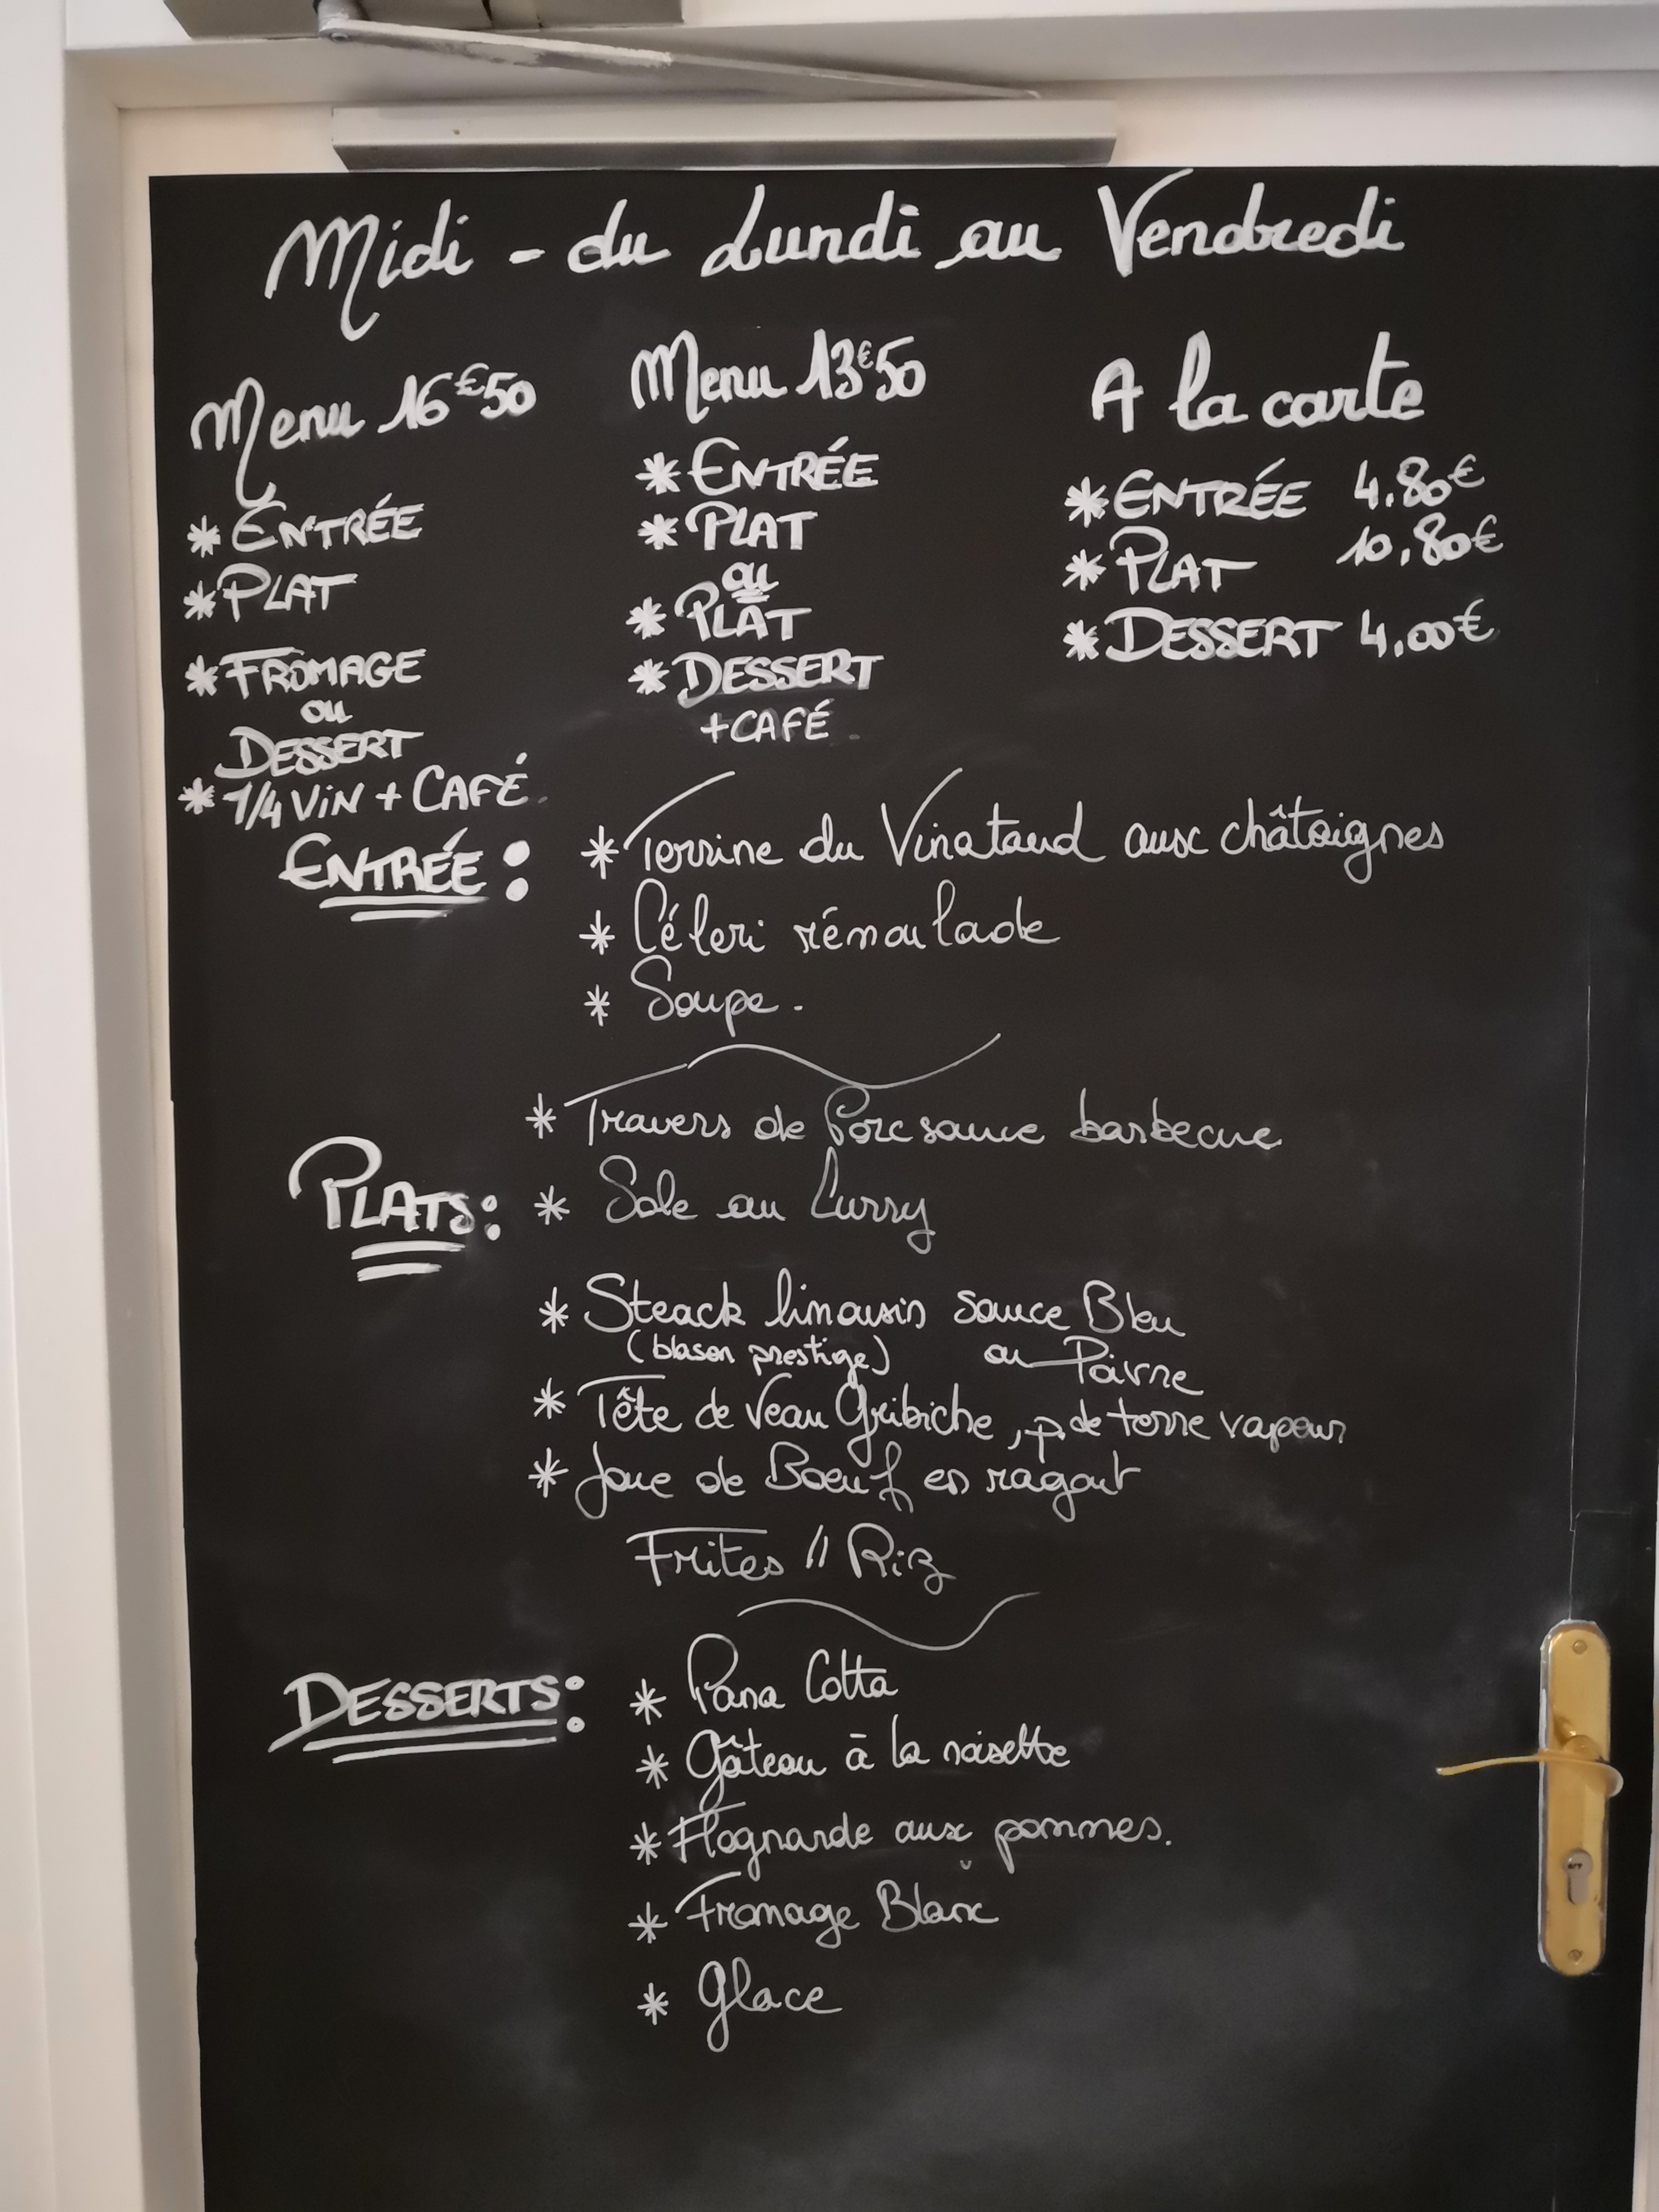 Midi - du Lundi au Vendredi
Menu 16€50
* ENTRÉE
* PLAT
* FROMAGE
ou
DESSERT
* 1/4 VIN + CAFÉ.
Menu 13€50
* ENTRÉE
* PLAT
ou
* PLAT
* DESSERT
+ CAFÉ
A la carte
* ENTRÉE 4.80€
* PLAT 10,80€
* DESSERT 4,00€
ENTRÉE :
* Terrine du Vinataud aux châtaignes
* Céleri rémoulade
* Soupe.
PLATS :
* Travers de Porc sauce barbecue
* Sole au Curry
* Steack limousin sauce Bleu
(blason prestige) ou Poivre
* Tête de Veau Gribiche, p. de terre vapeur
* Joue de Boeuf en ragout
Frites // Riz
DESSERTS :
* Pana Cotta
* Gâteau à la noisette
* Flognarde aux pommes.
* Fromage Blanc
* Glace